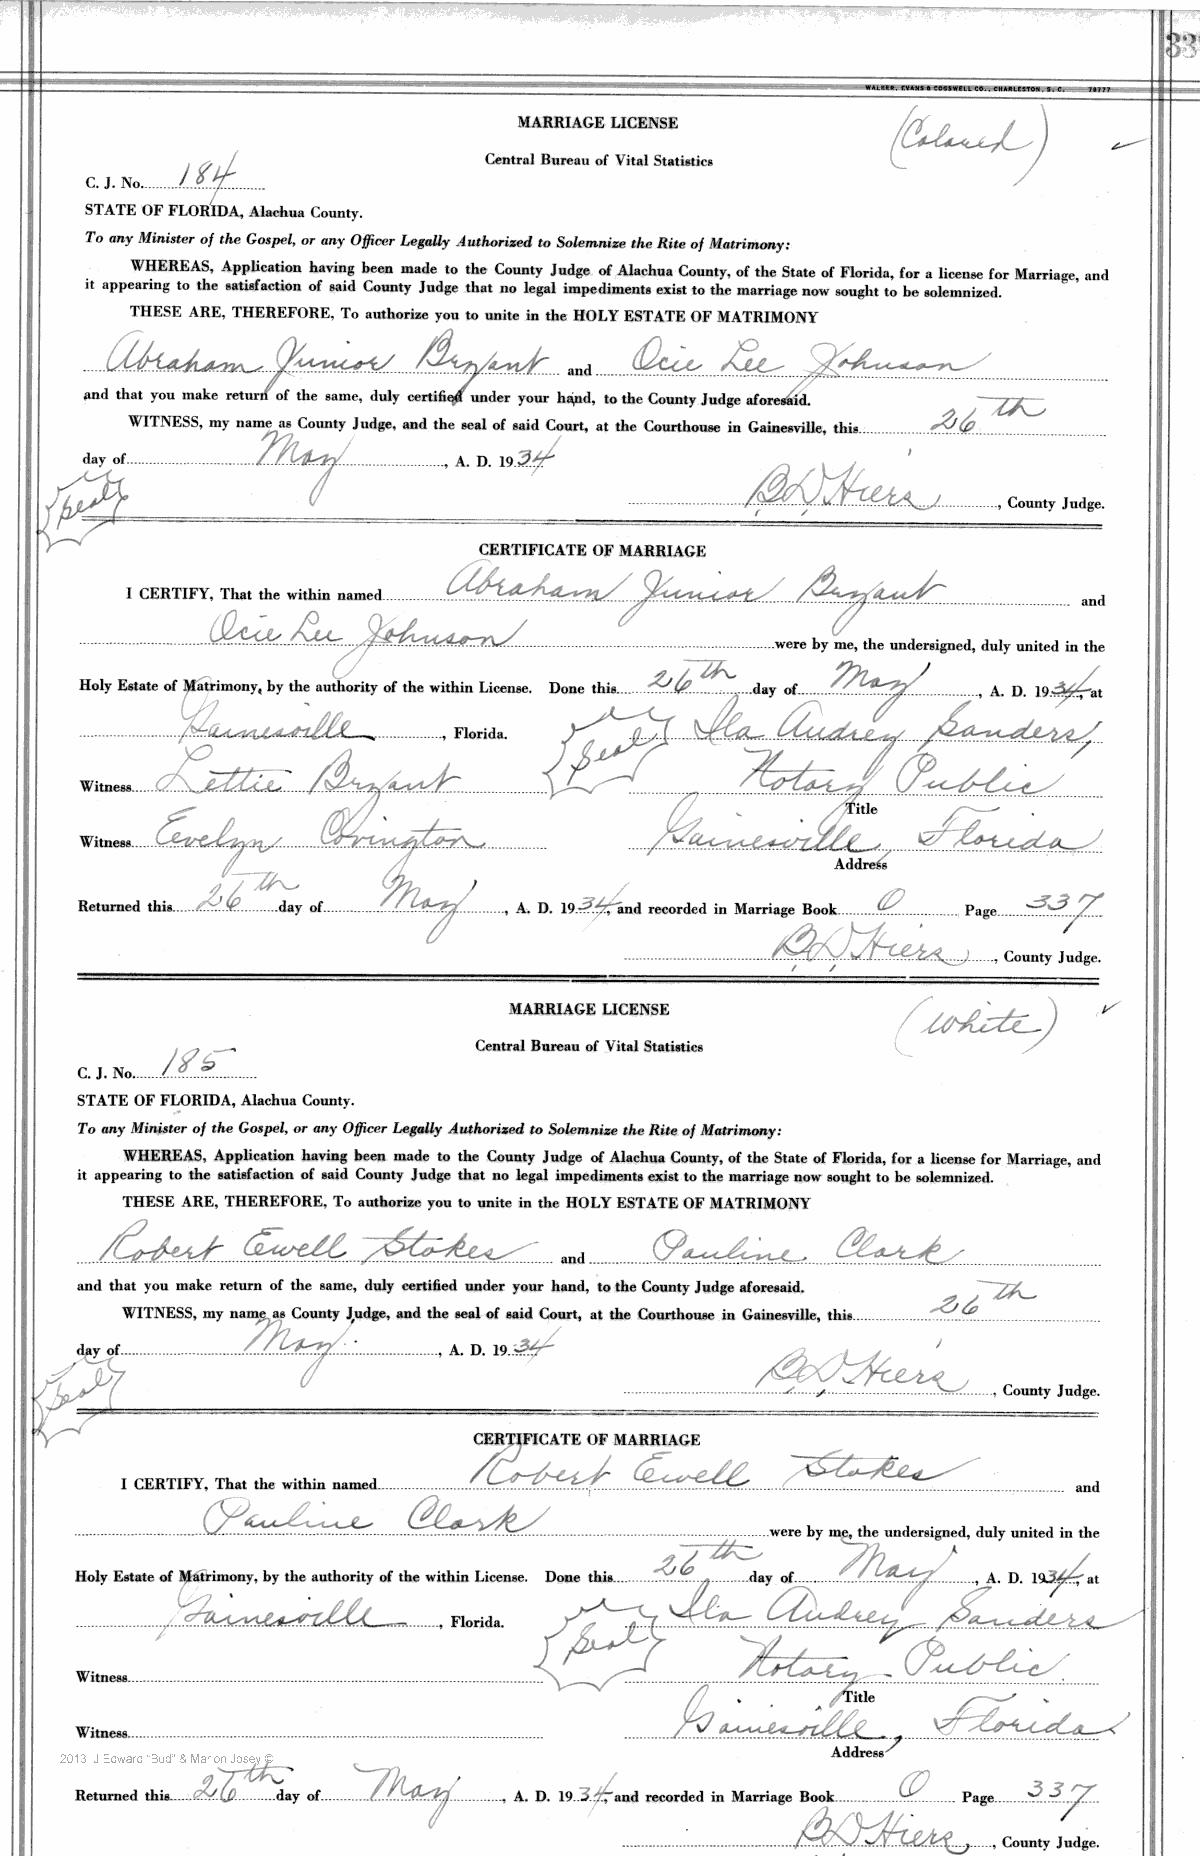 33
WALKER, EVANS & COGSWELL CO., CHARLESTON, S. C. 78777
MARRIAGE LICENSE
(Colored)
Central Bureau of Vital Statistics
C. J. No. 184
STATE OF FLORIDA, Alachua County.
To any Minister of the Gospel, or any Officer Legally Authorized to Solemnize the Rite of Matrimony:
WHEREAS, Application having been made to the County Judge of Alachua County, of the State of Florida, for a license for Marriage, and
it appearing to the satisfaction of said County Judge that no legal impediments exist to the marriage now sought to be solemnized.
THESE ARE, THEREFORE, To authorize you to unite in the HOLY ESTATE OF MATRIMONY
Abraham Junior Bryant and Ocie Lee Johnson
and that you make return of the same, duly certified under your hand, to the County Judge aforesaid.
WITNESS, my name as County Judge, and the seal of said Court, at the Courthouse in Gainesville, this 26th
day of May, A. D. 1934
Seal
B. D. Hiers, County Judge.
CERTIFICATE OF MARRIAGE
I CERTIFY, That the within named Abraham Junior Bryant and
Ocie Lee Johnson were by me, the undersigned, duly united in the
Holy Estate of Matrimony, by the authority of the within License. Done this 26th day of May, A. D. 1934, at
Gainesville, Florida. Seal Ila Audrey Sanders,
Witness Lettie Bryant Notary Public
Title
Witness Evelyn Covington Gainesville, Florida
Address
Returned this 26th day of May, A. D. 1934, and recorded in Marriage Book O Page 337
B. D. Hiers, County Judge.
MARRIAGE LICENSE
(White)
Central Bureau of Vital Statistics
C. J. No. 185
STATE OF FLORIDA, Alachua County.
To any Minister of the Gospel, or any Officer Legally Authorized to Solemnize the Rite of Matrimony:
WHEREAS, Application having been made to the County Judge of Alachua County, of the State of Florida, for a license for Marriage, and
it appearing to the satisfaction of said County Judge that no legal impediments exist to the marriage now sought to be solemnized.
THESE ARE, THEREFORE, To authorize you to unite in the HOLY ESTATE OF MATRIMONY
Robert Ewell Stokes and Pauline Clark
and that you make return of the same, duly certified under your hand, to the County Judge aforesaid.
WITNESS, my name as County Judge, and the seal of said Court, at the Courthouse in Gainesville, this 26th
day of May, A. D. 1934
Seal
B. D. Hiers, County Judge.
CERTIFICATE OF MARRIAGE
I CERTIFY, That the within named Robert Ewell Stokes and
Pauline Clark were by me, the undersigned, duly united in the
Holy Estate of Matrimony, by the authority of the within License. Done this 26th day of May, A. D. 1934, at
Gainesville, Florida. Seal Ila Audrey Sanders
Witness Notary Public
Title
Witness Gainesville, Florida
2013 J Edward "Bud" & Marion Josey ©
Address
Returned this 26th day of May, A. D. 1934, and recorded in Marriage Book O Page 337
B. D. Hiers, County Judge.